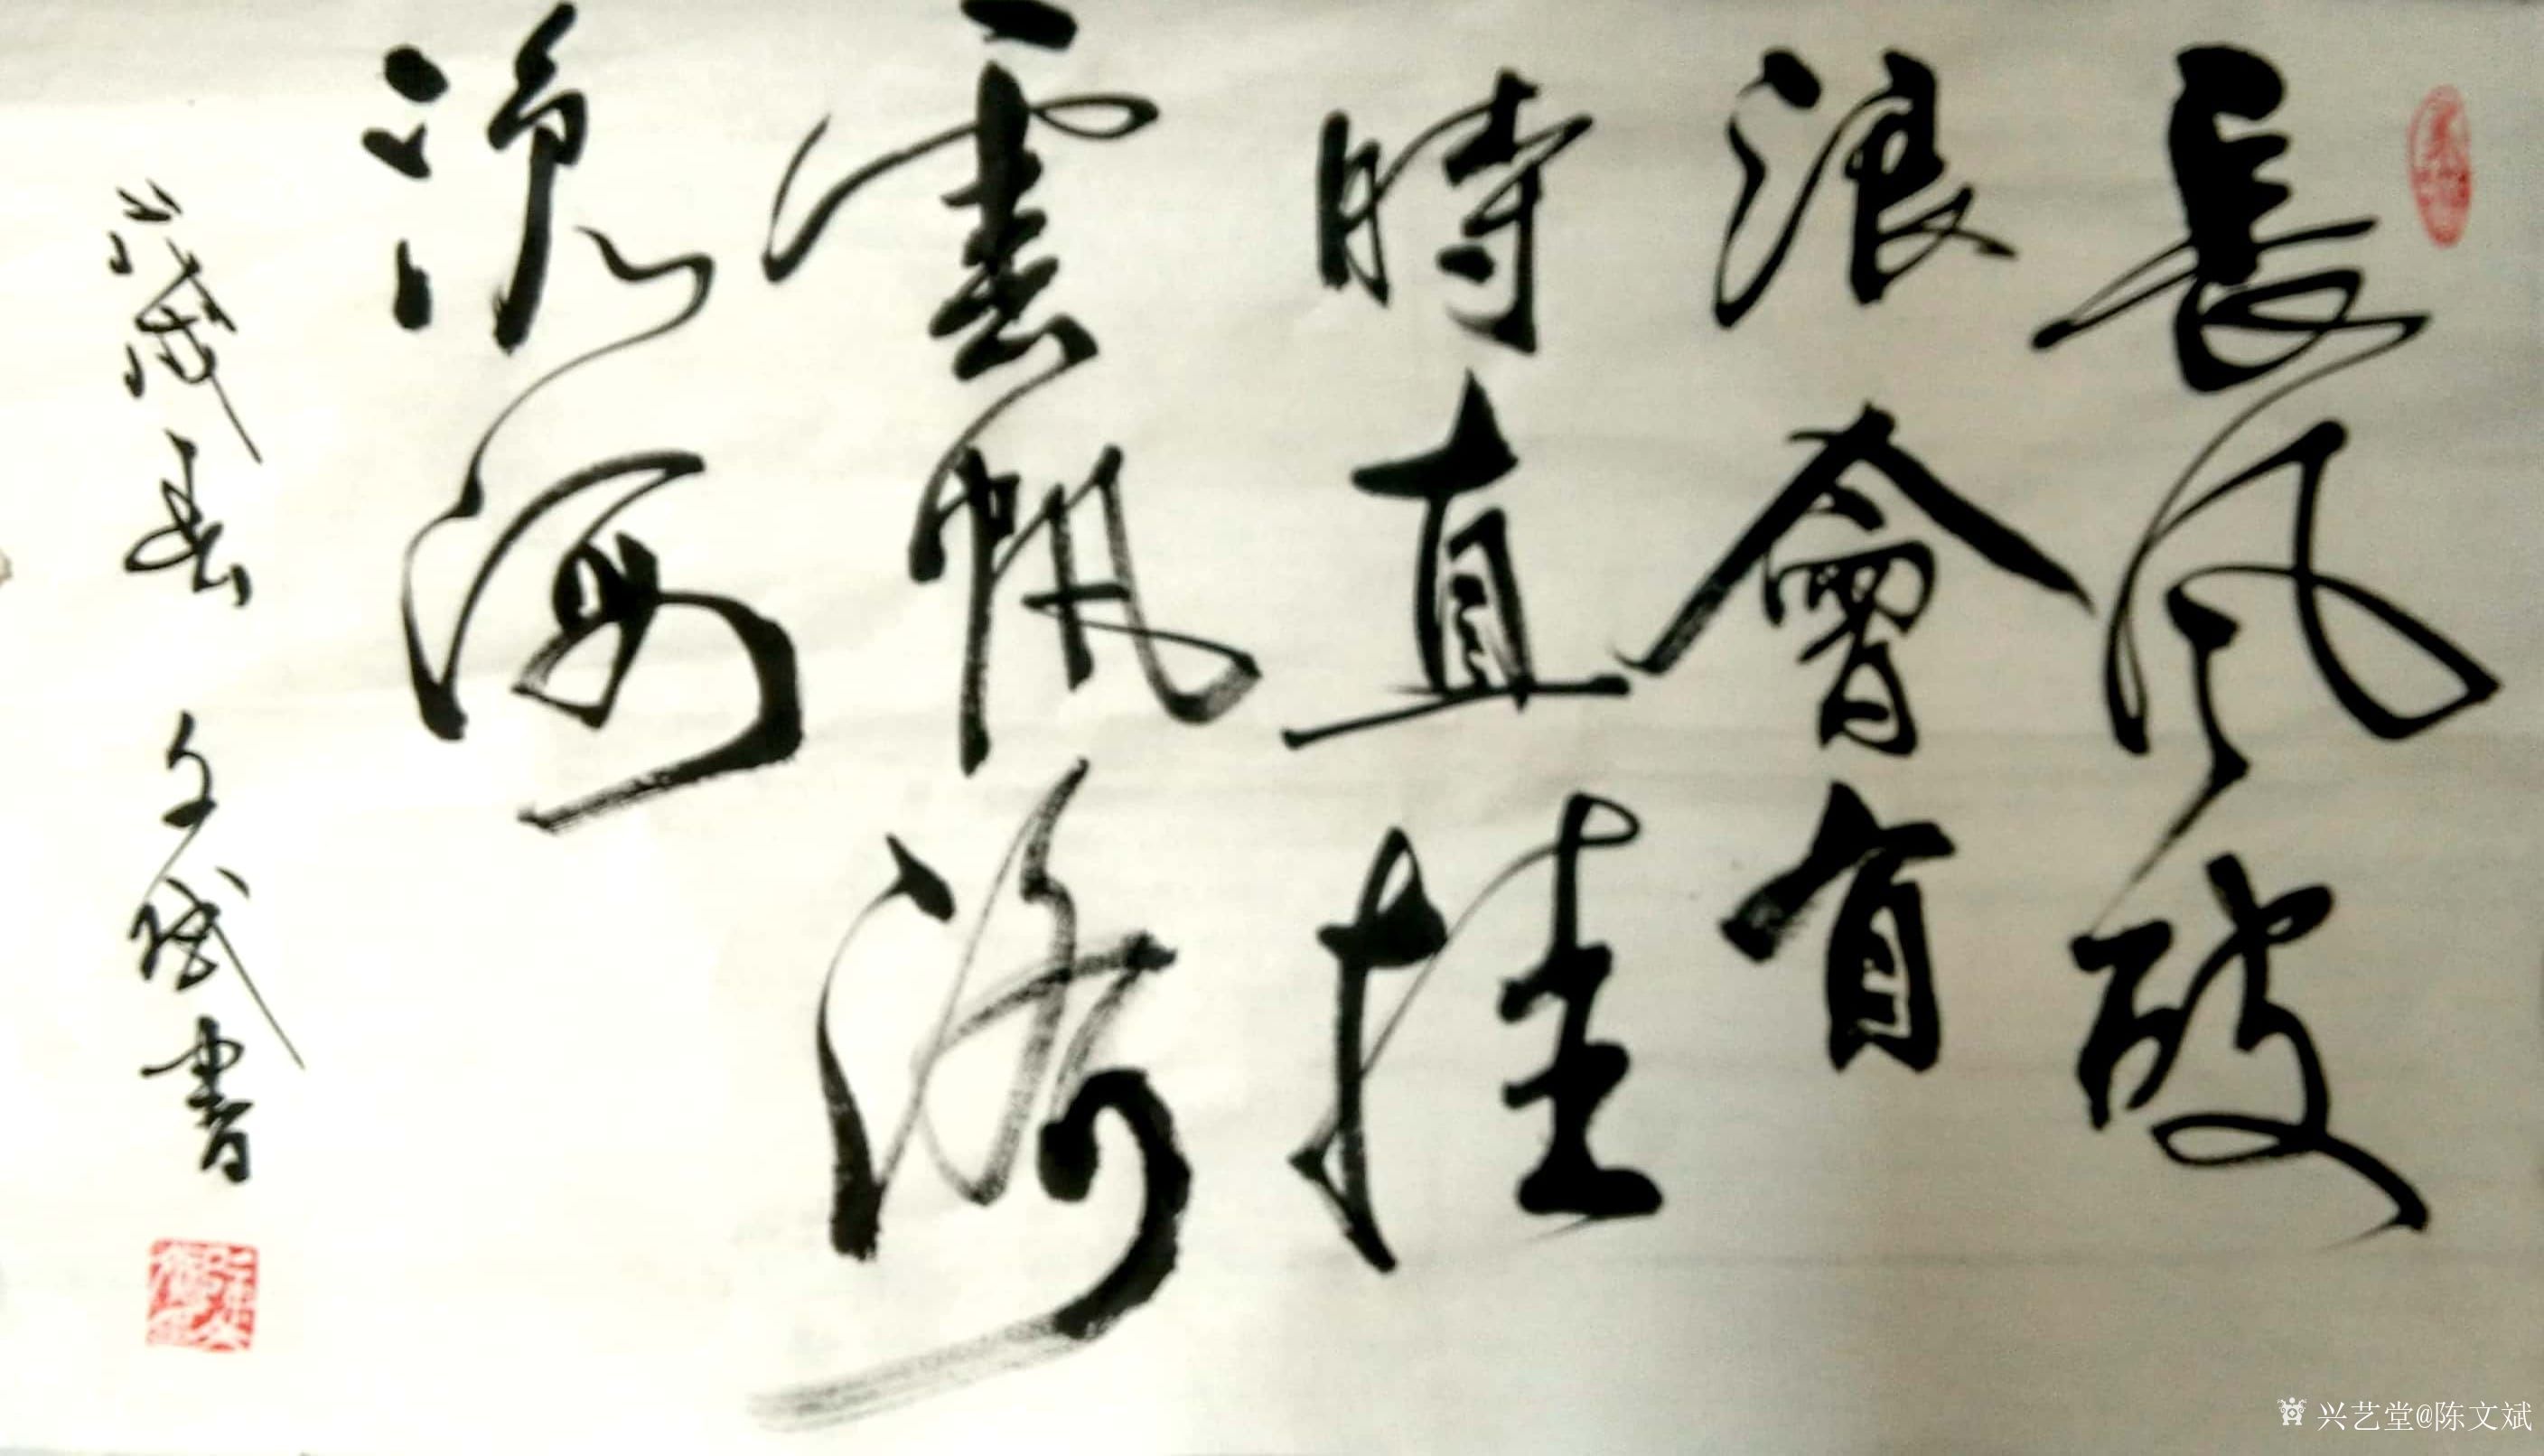 長風破
浪會有
時直挂
雲帆濟
滄海
春 文斌書
兴艺堂@陈文斌